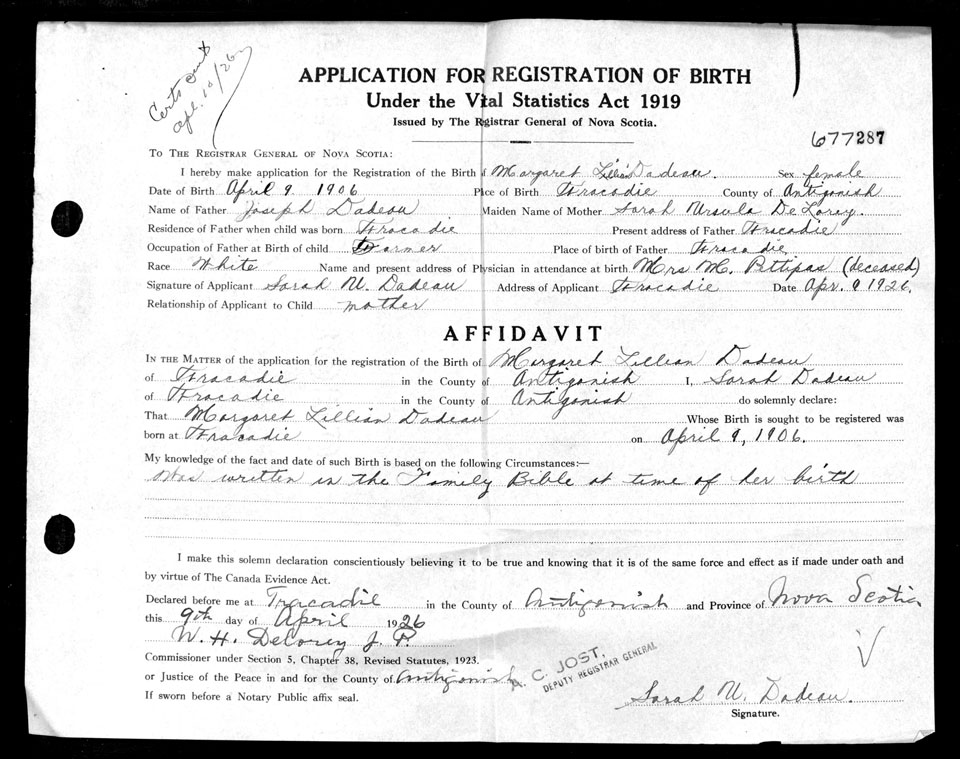 Certs Sent
Apl. 10/26
APPLICATION FOR REGISTRATION OF BIRTH
Under the Vital Statistics Act 1919
Issued by The Registrar General of Nova Scotia.
677287
To The Registrar General of Nova Scotia:
I hereby make application for the Registration of the Birth of Margaret Lillian Dadeau. Sex female
Date of Birth April 9 1906 Place of Birth Tracadie County of Antigonish
Name of Father Joseph Dadeau Maiden Name of Mother Sarah Ursula DeLorey.
Residence of Father when child was born Tracadie Present address of Father Tracadie
Occupation of Father at Birth of child Farmer Place of birth of Father Tracadie
Race White Name and present address of Physician in attendance at birth Mrs M. Pettipas (deceased)
Signature of Applicant Sarah U. Dadeau Address of Applicant Tracadie Date Apr. 9 1926.
Relationship of Applicant to Child mother
AFFIDAVIT
In the Matter of the application for the registration of the Birth of Margaret Lillian Dadeau
of Tracadie in the County of Antigonish I, Sarah Dadeau
of Tracadie in the County of Antigonish do solemnly declare:
That Margaret Lillian Dadeau Whose Birth is sought to be registered was
born at Tracadie on April 9, 1906.
My knowledge of the fact and date of such Birth is based on the following Circumstances:—
Was written in the Family Bible at time of her birth
I make this solemn declaration conscientiously believing it to be true and knowing that it is of the same force and effect as if made under oath and
by virtue of The Canada Evidence Act.
Declared before me at Tracadie in the County of Antigonish and Province of Nova Scotia
this 9th day of April 1926
W. H. DeLorey J. P.
Commissioner under Section 5, Chapter 38, Revised Statutes, 1923.
or Justice of the Peace in and for the County of Antigonish
A. C. JOST,
DEPUTY REGISTRAR GENERAL
If sworn before a Notary Public affix seal.
Sarah U. Dadeau.
Signature.